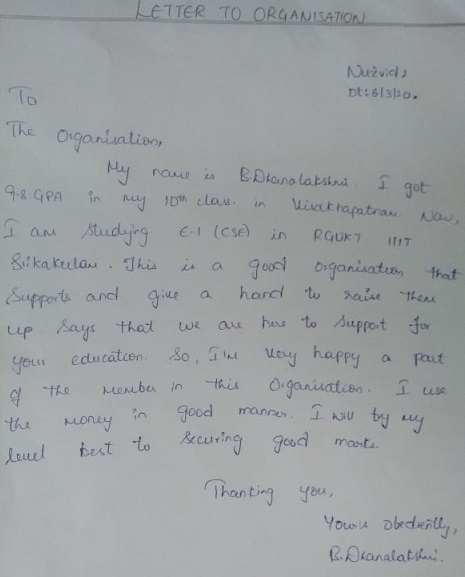 LETTER TO ORGANISATION
Nuzvid,
Dt:6/3/20.
To
The Organisation,
My name is B.Dhanalakshmi. I got
9.8 GPA in my 10th class. in Visakhapatnam. Now,
I am studying E-1 (CSE) in RGUKT IIIT
Srikakulam. This is a good organisation that
supports and give a hand to raise them
up. Says that we are here to support for
your education. So, I'm very happy a part
of the member in this Organisation. I use
the money in good manner. I will try my
level best to securing good marks.
Thanking you,
Yours obediently,
B.Dhanalakshmi.